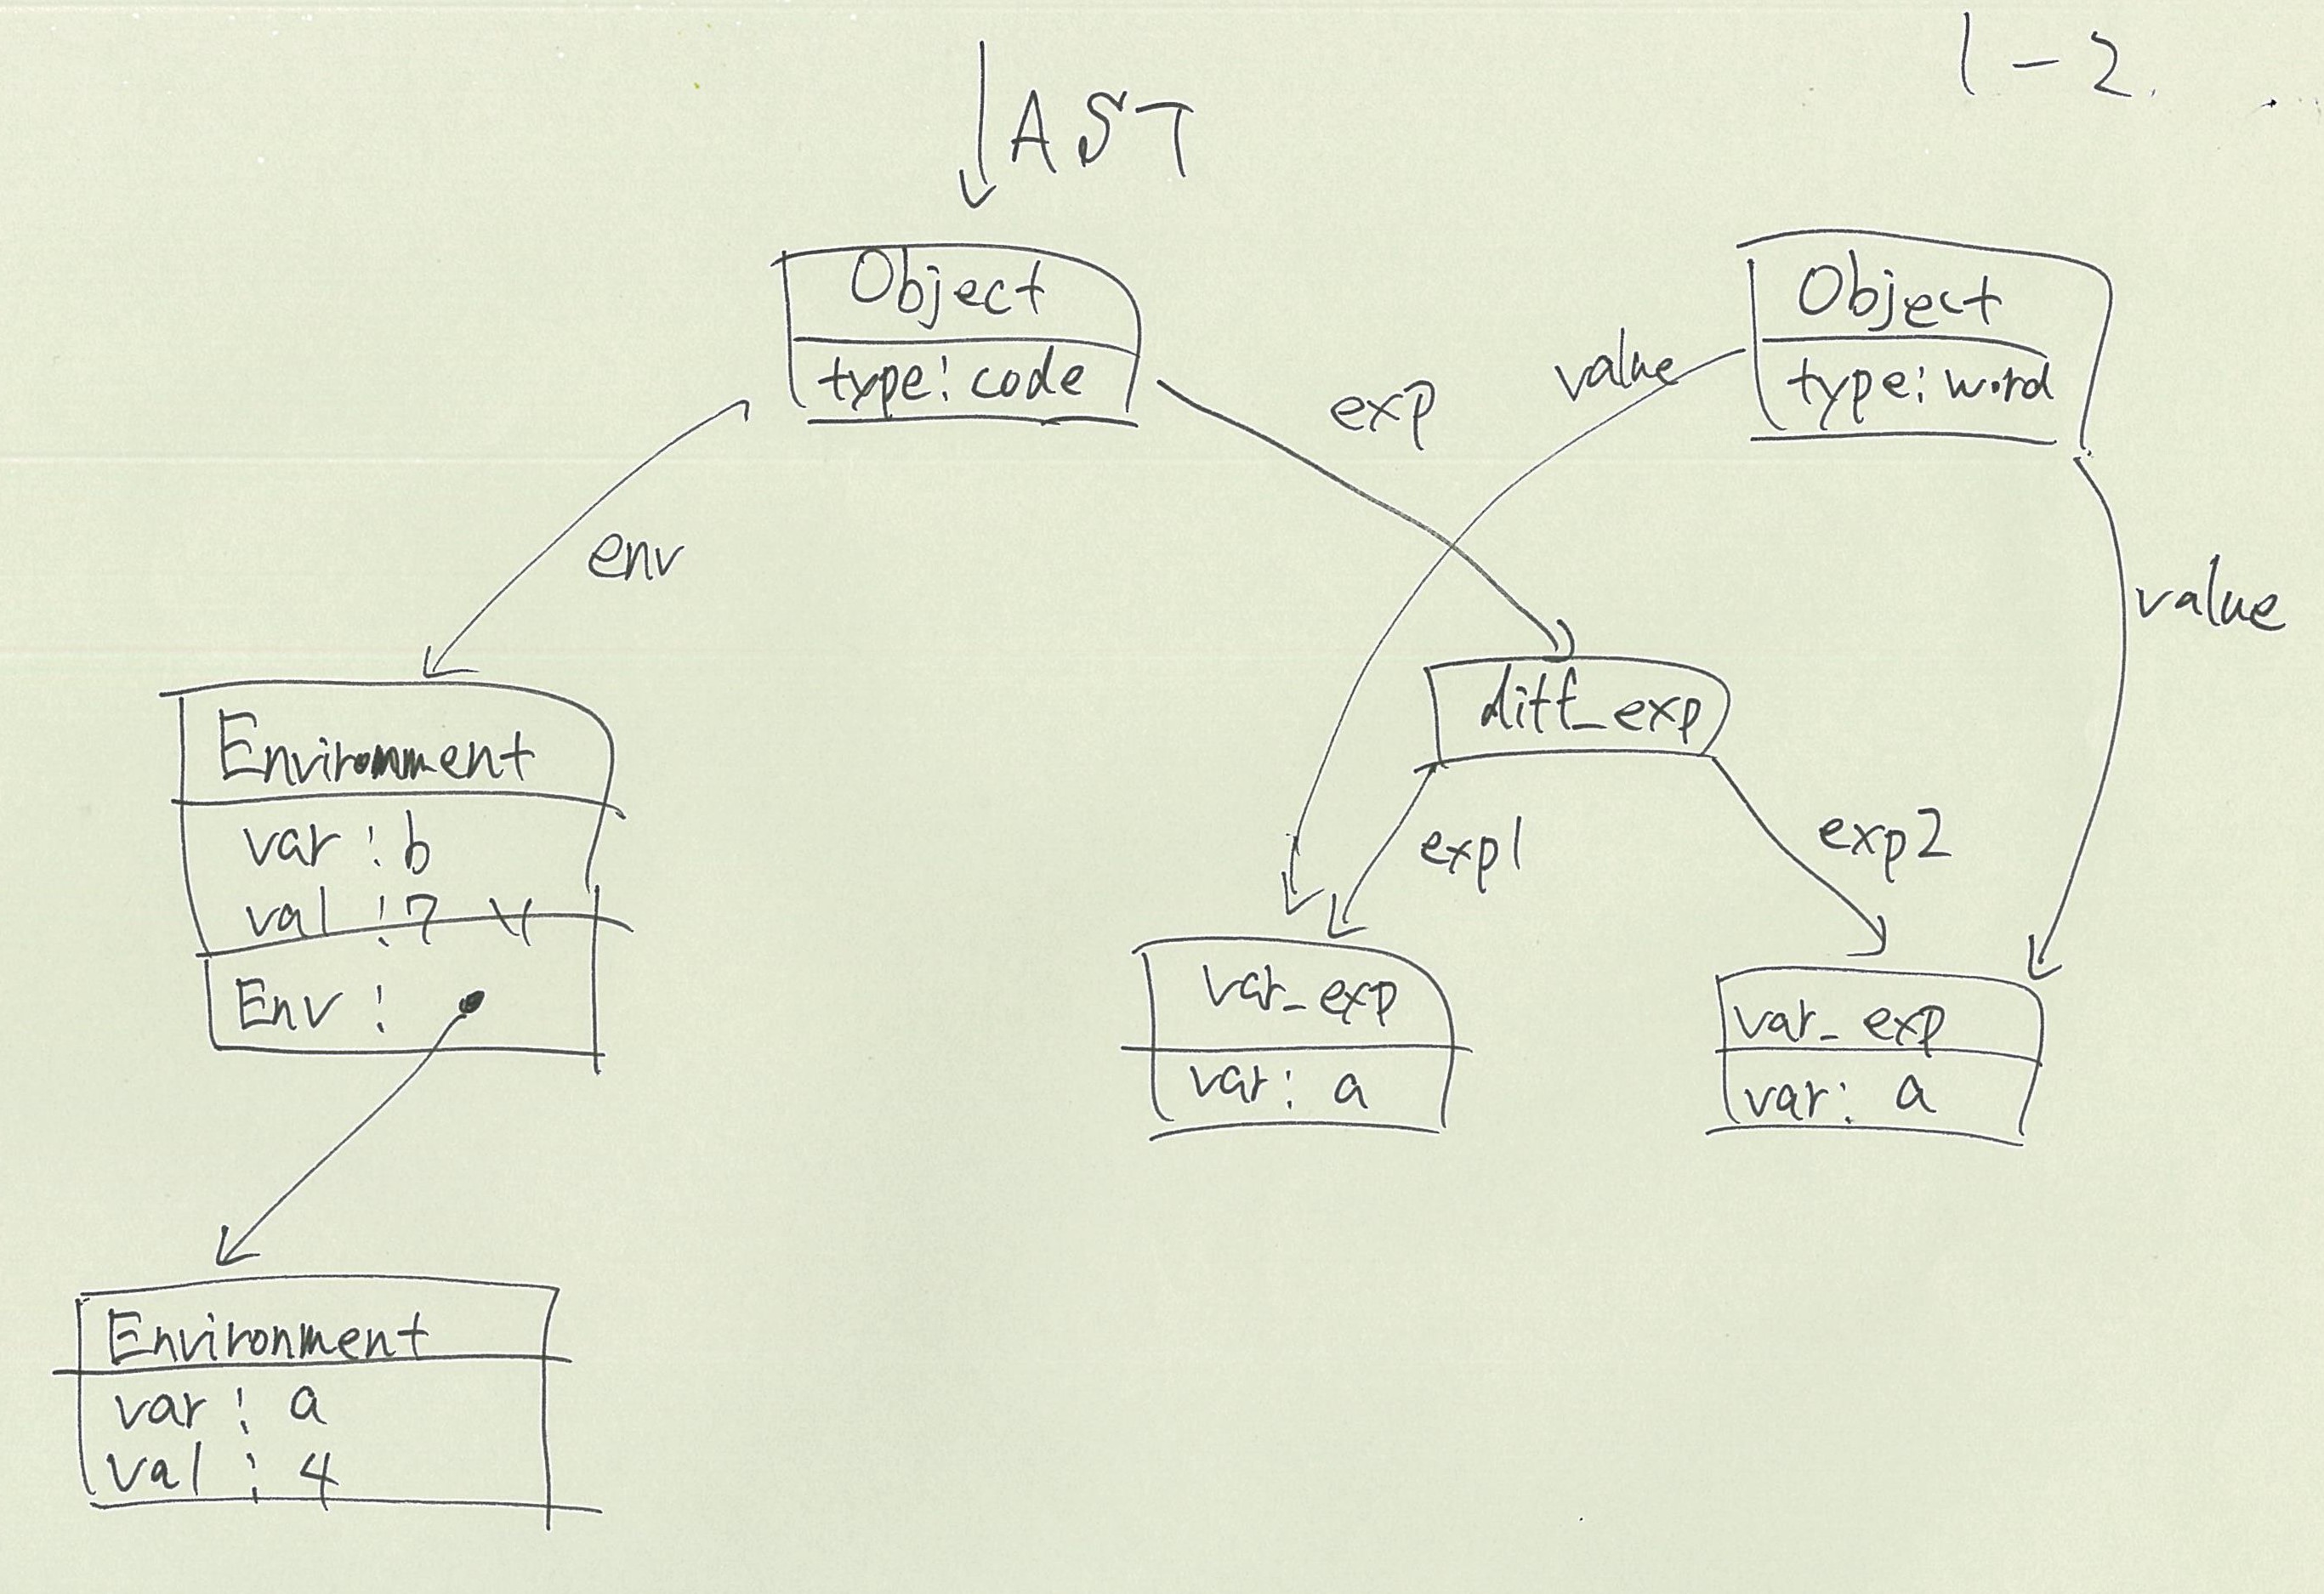 1-2.
AST
Object
type: code
Object
type: word
value
exp
env
value
diff_exp
Environment
var: b
val: 7
Env:
exp1
exp2
var_exp
var: a
var_exp
var: a
Environment
var: a
val: 4